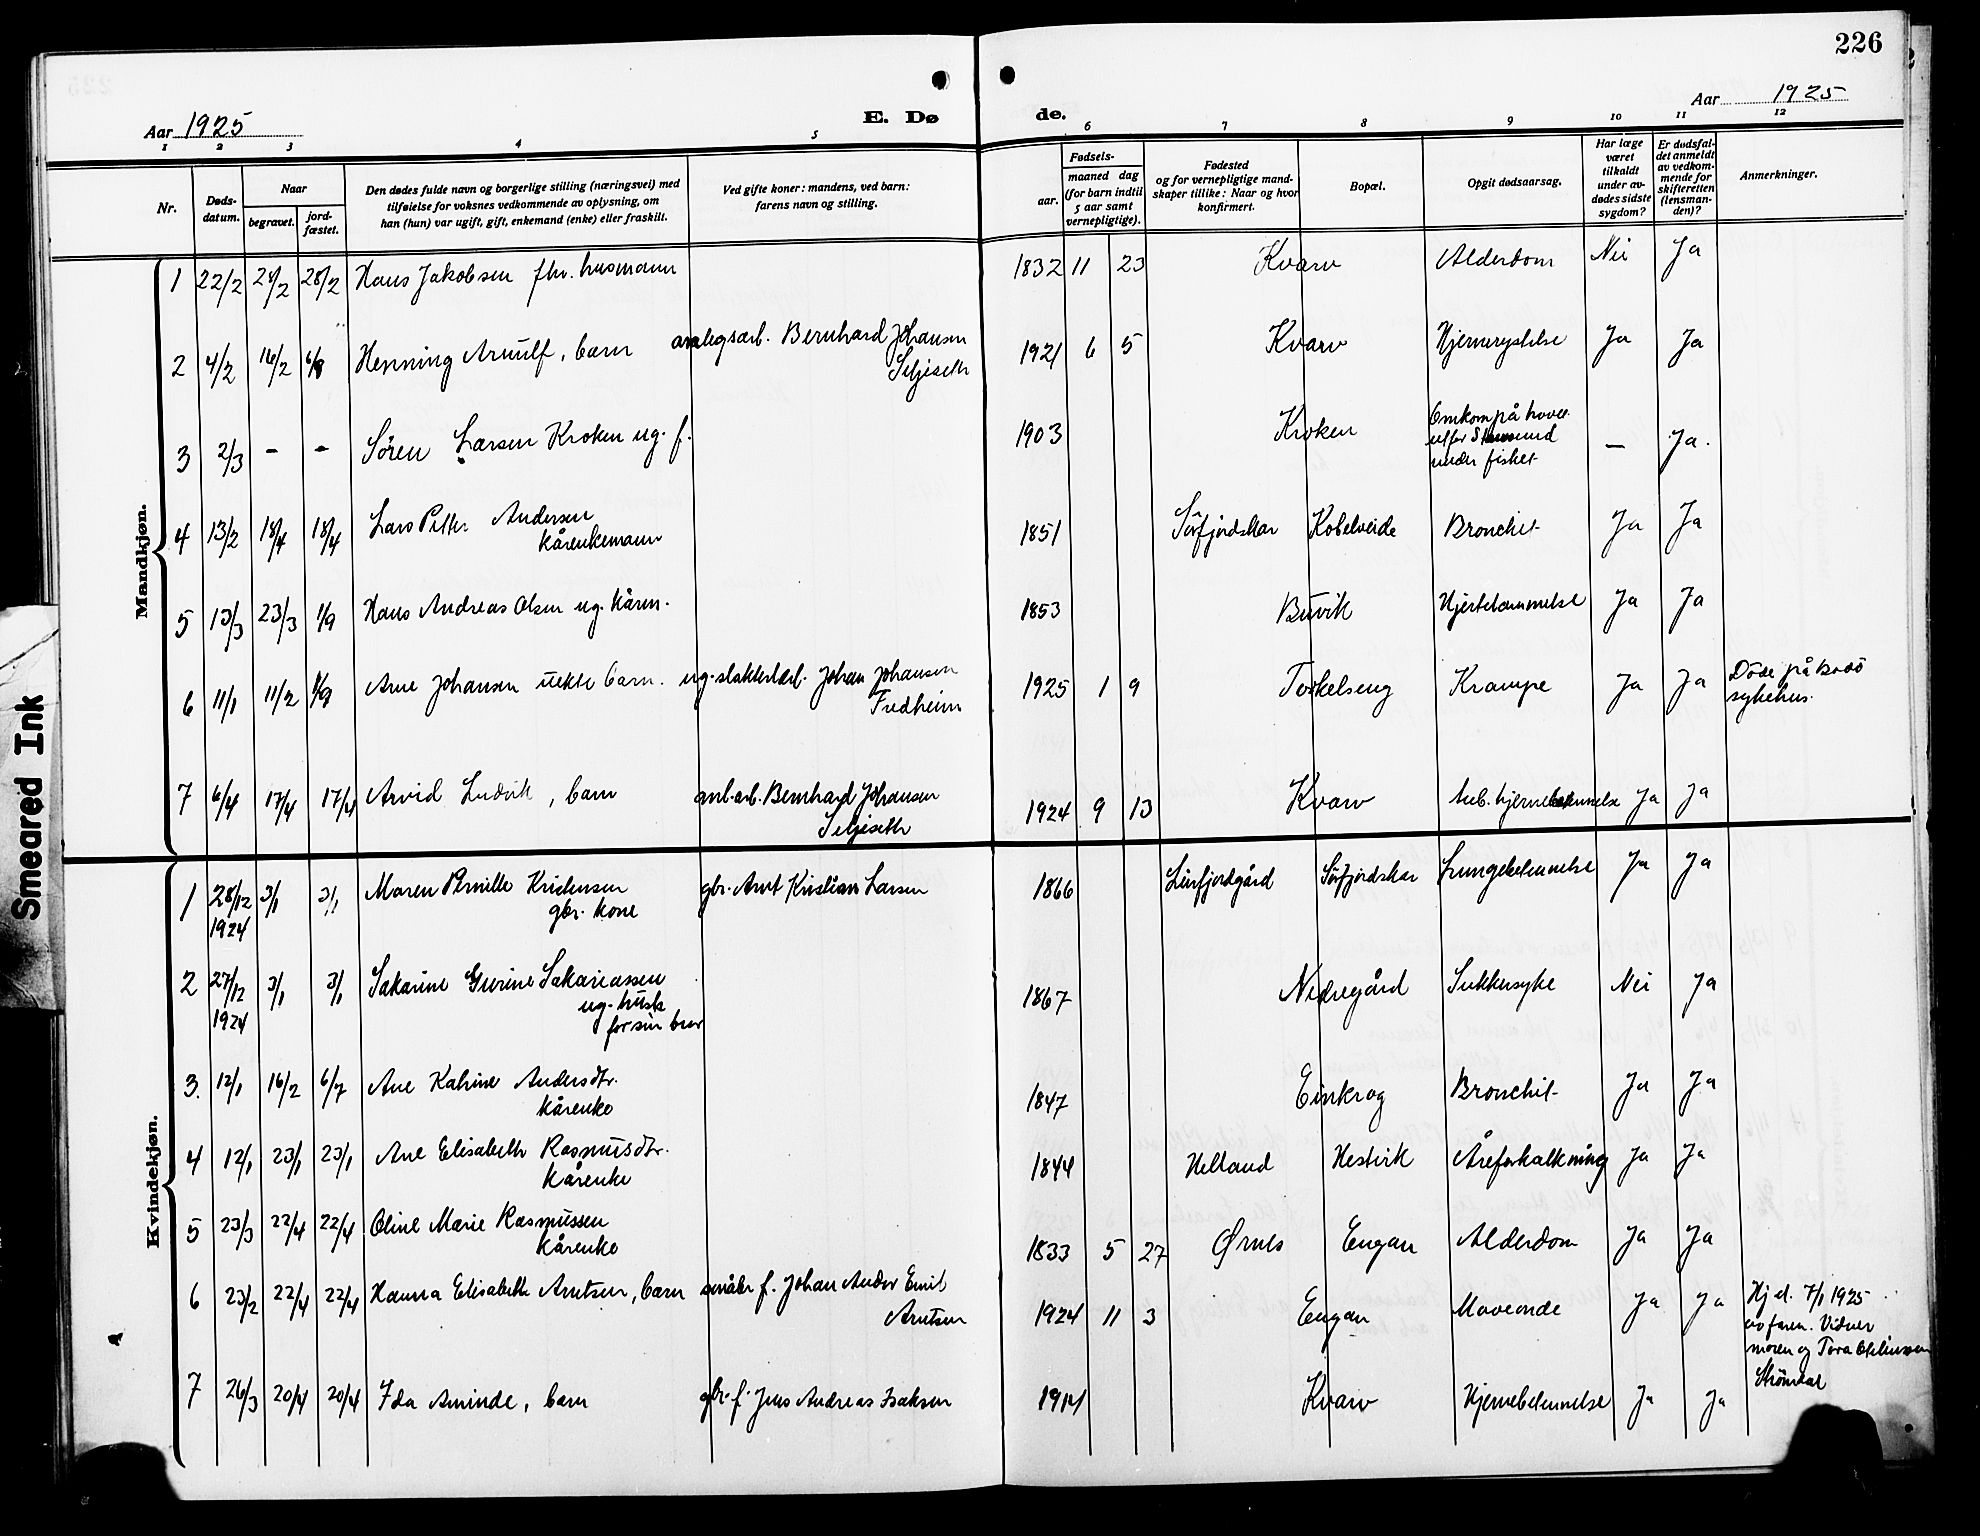 226
Aar 1925
E. Dø
de.
Aar 1925
1 2 3 4 5 6 7 8 9 10 11 12
Nr.
Døds-
datum.
Naar
begravet.
jord-
fæstet.
Den dødes fulde navn og borgerlige stilling (næringsvei) med
tilføielse for voksnes vedkommende av oplysning, om
han (hun) var ugift, gift, enkemand (enke) eller fraskilt.
Ved gifte koner: mandens, ved barn:
farens navn og stilling.
Fødsels-
aar.
maaned dag
(for barn indtil
5 aar samt
vernepligtige).
Fødested
og for vernepligtige mand-
skaper tillike: Naar og hvor
konfirmert.
Bopæl.
Opgit dødsaarsag.
Har læge
været
tilkaldt
under av-
dødes sidste
sygdom?
Er dødsfal-
det anmeldt
av vedkom-
mende for
skifteretten
(lensman-
den)?
Anmerkninger.
Mandkjøn.
1 22/2 28/2 28/2 Hans Jakobsen fhv. husmann 1832 11 23 Kvarv Alderdom Nei Ja
2 4/2 16/2 6/8 Henning Arnulf, barn anlegsarb. Bernhard Johansen
Seljeseth
1921 6 5 Kvarv Hjernerystelse Ja Ja
3 2/3 - - Sören Larsen Kroken ug. f. 1903 Kroken Omkom på havet
utfor Stamsund
under fisket
— Ja.
4 13/2 18/4 18/4 Lars Petter Andersen
kårenkemann
1851 Sörfjordskar Kobelveide Bronchit Ja Ja
5 13/3 23/3 1/9 Hans Andreas Olsen ug. kårm. 1853 Buvik Hjertelammelse Ja Ja
6 11/1 11/2 1/9 Arne Johansen uekte barn. ug. slakteriarb. Johan Johansen
Fredheim
1925 1 9 Torkelseng Krampe Ja Ja Döde på Bodö
sykehus.
7 6/4 17/4 17/4 Arvid Ludvik, barn anl.arb. Bernhard Johansen
Seljeseth
1924 9 13 Kvarv tub. hjernebetennelse Ja Ja
Kvindekjøn.
1 28/12
1924
3/1 3/1 Maren Pernille Kristensen
gbr. kone
gbr. Arnt Kristian Larsen 1866 Leirfjordgård Sörfjordskar Lungebetennelse Ja Ja
2 27/12
1924
3/1 3/1 Sakarine Gurine Sakariassen
ug. hush.
for sin bror
1867 Nedregård Sukkersyke Nei Ja
3. 12/1 16/2 6/7 Ane Katrine Andersdtr.
kårenke
1847 Einkrog Bronchit Ja Ja
4 12/1 23/1 23/1 Ane Elisabeth Rasmusdtr.
kårenke
1844 Helland Hestvik Åreforkalkning Ja Ja
5 23/3 22/4 22/4 Oline Marie Rasmussen
kårenke
1833 5 27 Ørnes Engan Alderdom Ja Ja
6 23/2 22/4 22/4 Hanna Elisabeth Arntsen, barn småbr f. Johan Andor Emil
Arntsen
1924 11 3 Engan Maveonde Ja Ja Hj.d. 7/1 1925
av faren. Vidner
moren og Tora
Strömdal
7 26/3 20/4 20/4 Ida Aminde, barn gbr. f. Jens Andreas Isaksen 1914 Kvarv Hjernebetennelse Ja Ja
Smeared Ink